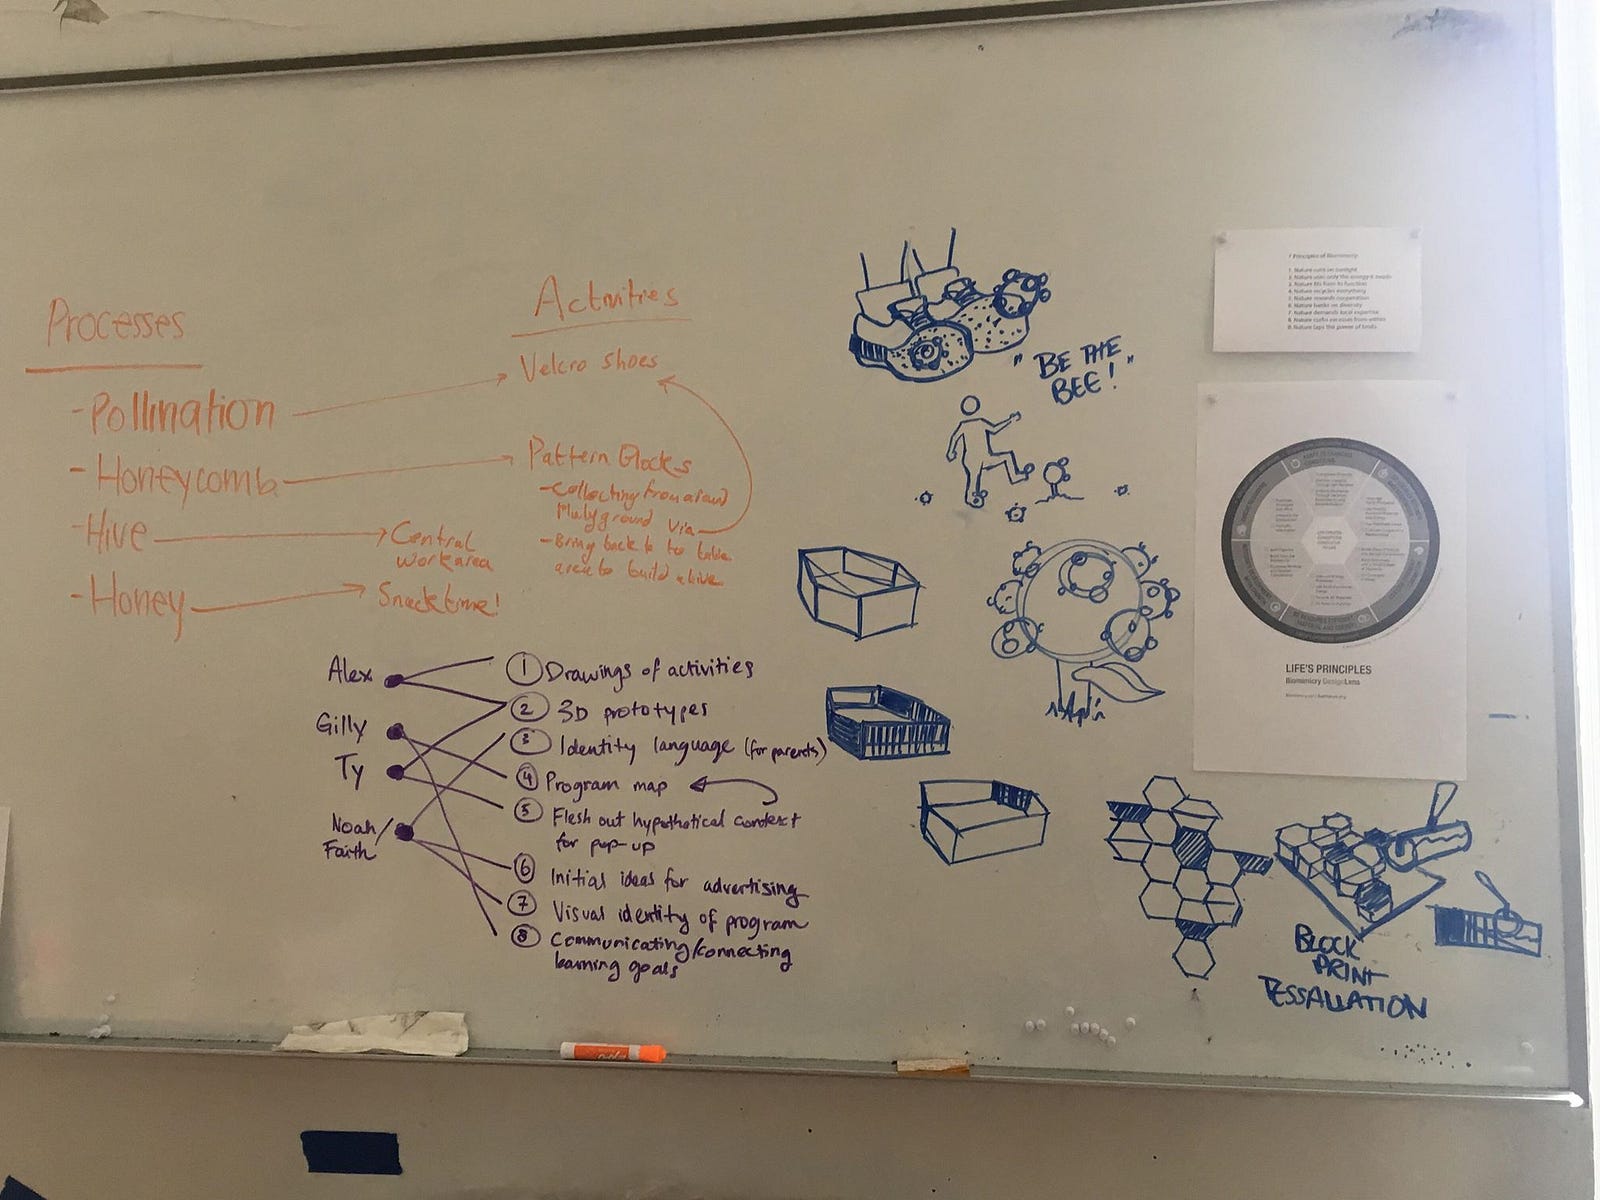 Processes
-Pollination
-Honeycomb
-Hive
-Honey
Central
workarea
Snacktime!
Activities
Velcro shoes
Pattern Blocks
-Collecting from around
Playground via
-Bring back to
area to build a hive
Alex
Gilly
Ty
Noah/
Faith
① Drawings of activities
② 3D prototypes
③ Identity language (for parents)
④ Program map
⑤ Flesh out hypothetical context
for pop-up
⑥ Initial ideas for advertising
⑦ Visual identity of program
⑧ Communicating/connecting
learning goals
"BE THE
BEE!"
BLOCK
PRINT
TESSALLATION
Principles of Biomimicry
1. Nature runs on sunlight
2. Nature uses only the energy it needs
3. Nature fits form to function
4. Nature recycles everything
5. Nature rewards cooperation
6. Nature banks on diversity
7. Nature demands local expertise
8. Nature curbs excesses from within
9. Nature taps the power of limits
LIFE'S PRINCIPLES
Biomimicry DesignLens